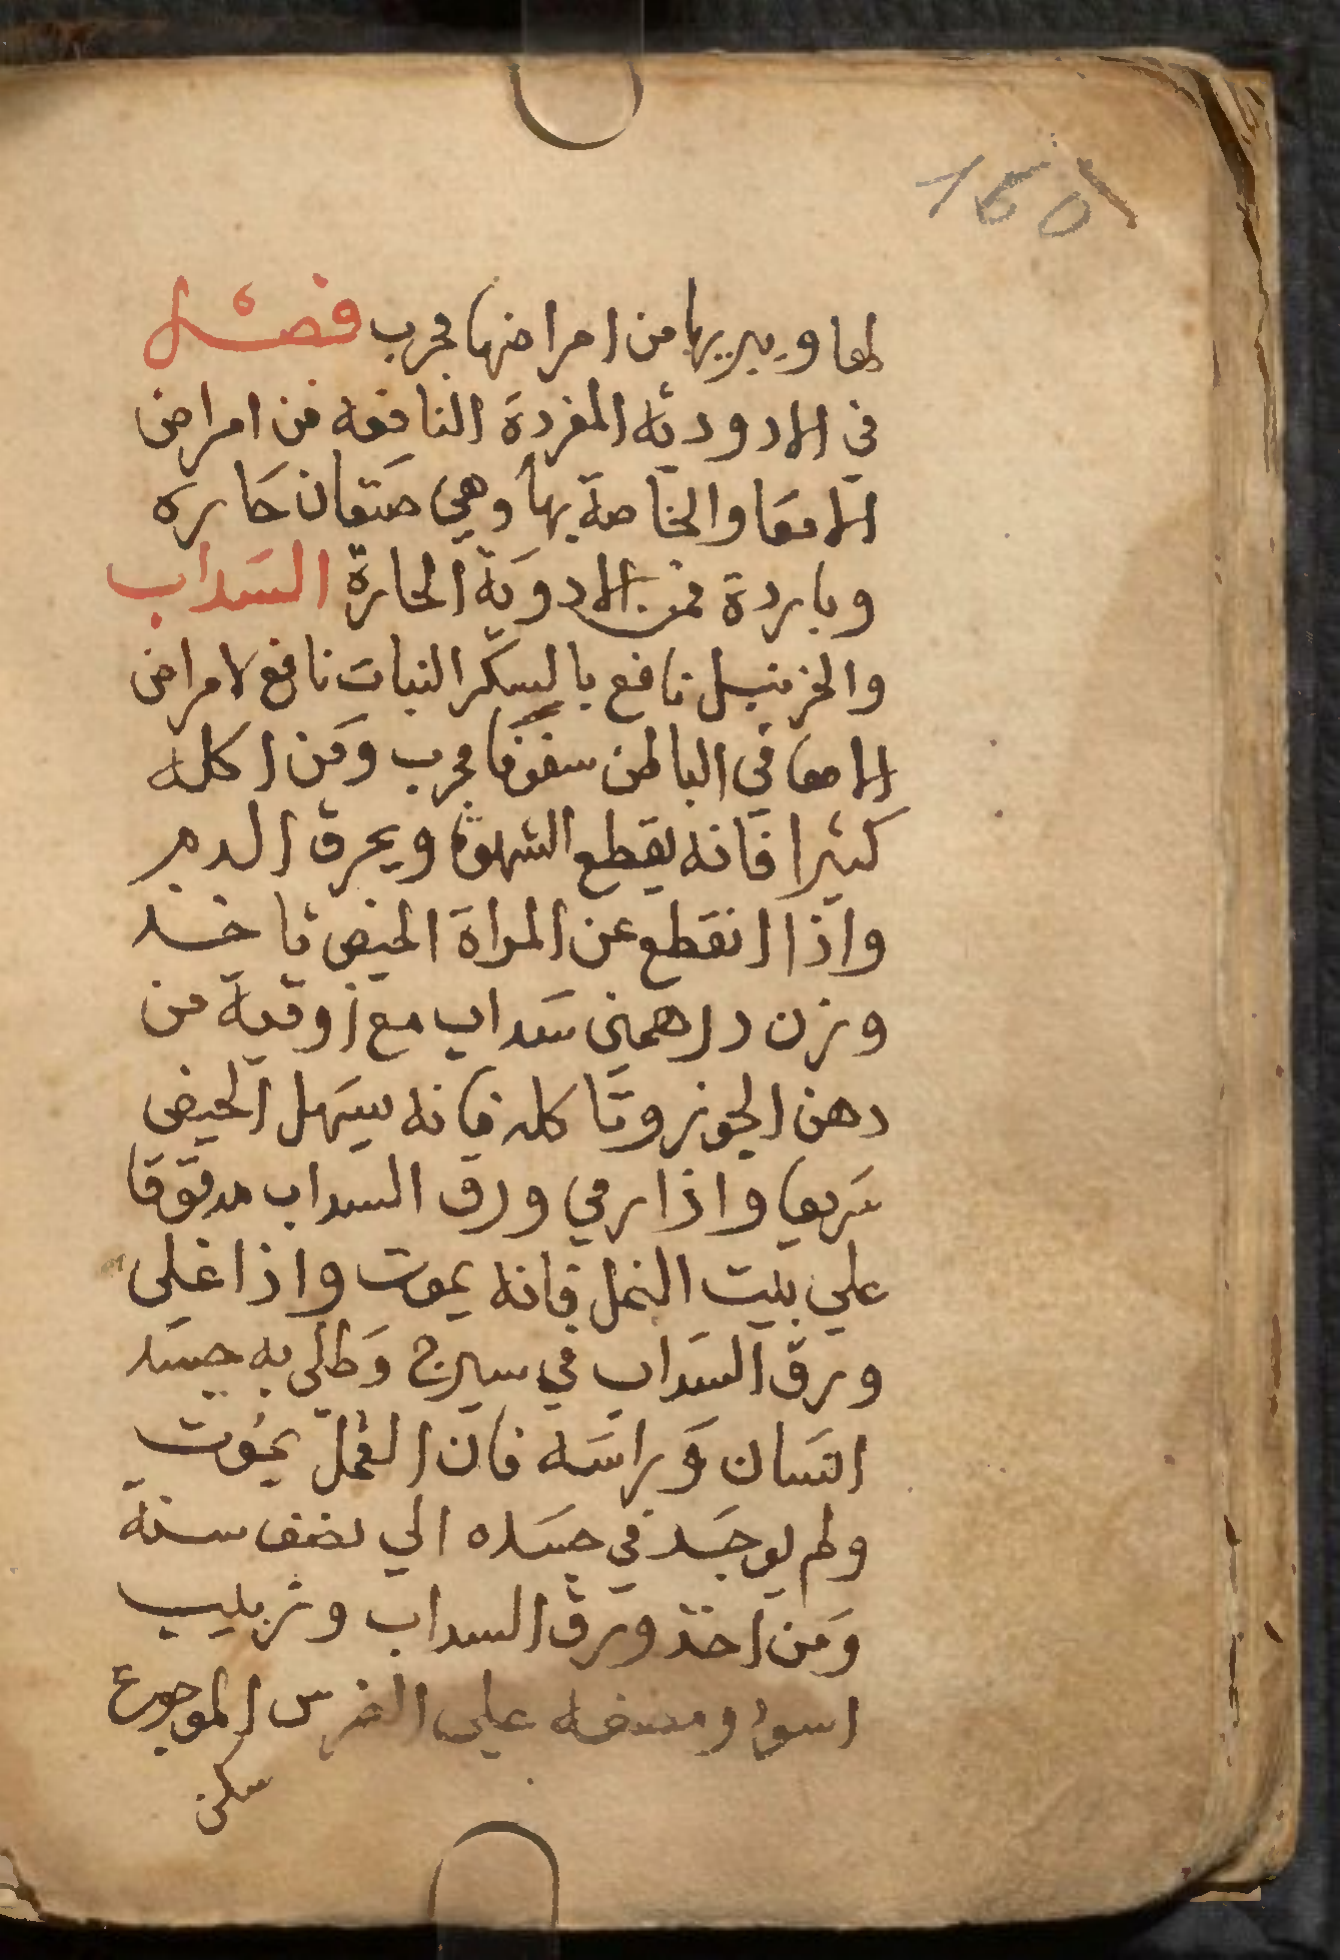 160
لها ويبريها من امراضها مجرب فصل
في الادوية المفردة النافعة من امراض
الامعا والخاصة بها وهي صنفان حاره
وباردة فمن الادوية الحارة السداب
والخزنبل نافع بالسكر النبات نافع لامراض
الامعا في الباطن سفوفا مجرب ومن اكله
كثيرا فانه يقطع الشهوة ويحرق الدم
واذا انقطع عن المراة الحيض تاخد
وزن درهمين سداب مع زوقية من
دهن الجوز وتاكله فانه يسهل الحيض
سريعا واذا رمي ورق السداب مدقوقا
علي بيت النمل فانه يموت واذا غلي
ورق السداب في سيرج وطلي به جسد
انسان وبراسه فان القمل يموت
ولم يوجد في جسده الي نصف سنة
ومن اخذ ورق السداب وزبيب
اسود ومضغه علي الضرس الموجوع
سكن